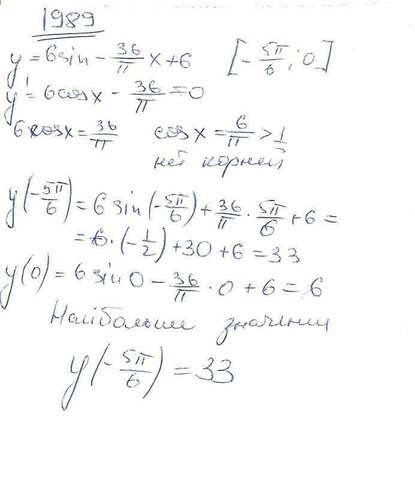 1989
y = 6sin - 36/π x + 6 [-5π/6; 0]
y' = 6cosx - 36/π = 0
6cosx = 36/π cosx = 6/π > 1
нет корней
y(-5π/6) = 6 sin(-5π/6) + 36/π · 5π/6 + 6 =
= 6 · (-1/2) + 30 + 6 = 33
y(0) = 6 sin0 - 36/π · 0 + 6 = 6
Наибольшее значении
y(-5π/6) = 33